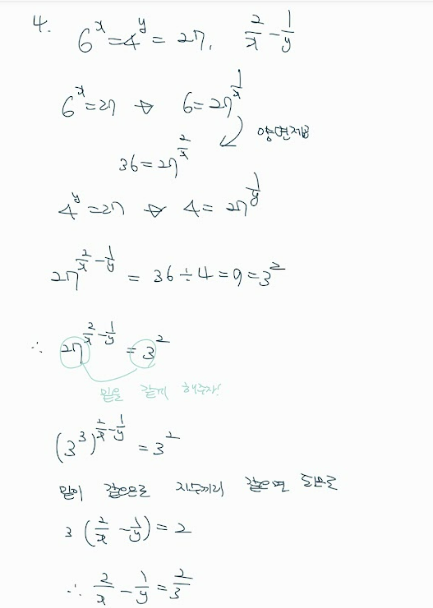 4. 6^x = 4^y = 27, 2/x - 1/y
6^x = 27 ⇨ 6 = 27^(1/x)
양변제곱
36 = 27^(2/x)
4^y = 27 ⇨ 4 = 27^(1/y)
27^(2/x - 1/y) = 36 ÷ 4 = 9 = 3^2
∴ 27^(2/x - 1/y) = 3^2
밑을 같게 해주자!
(3^3)^(2/x - 1/y) = 3^2
밑이 같으므로 지수끼리 같으면 되므로
3 (2/x - 1/y) = 2
∴ 2/x - 1/y = 2/3